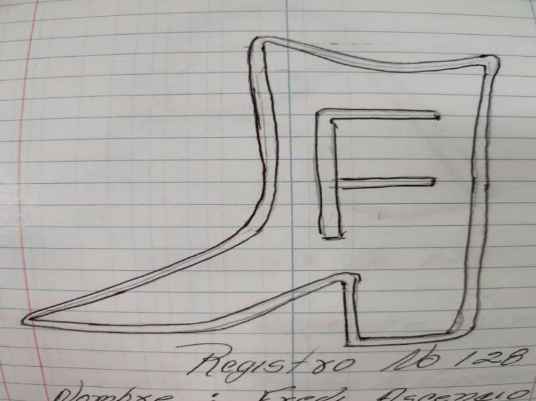 F
Registro No 128
Nombre : Fredi Ascencio